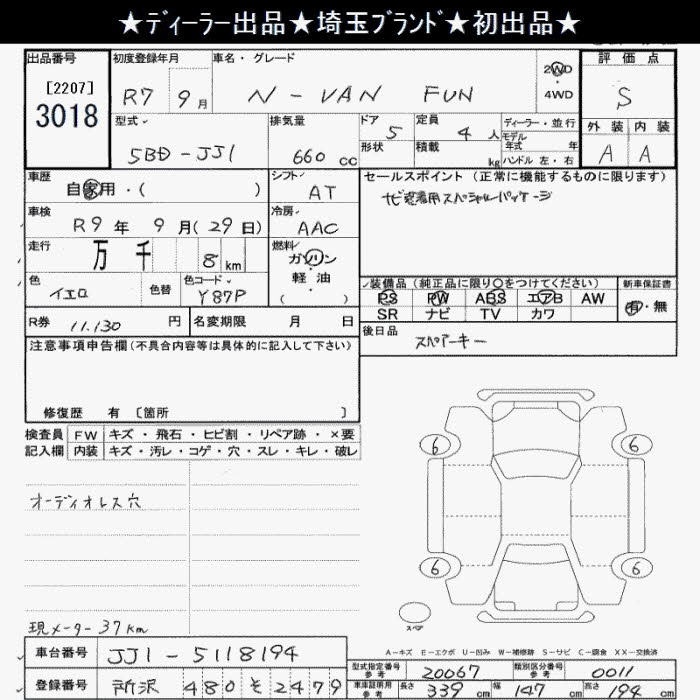 ★ディーラー出品★埼玉ブランド★初出品★
出品番号
[2207]
3018
初度登録年月
R7 9月
車名・グレード
N-VAN FUN
2WD
4WD
評価点
S
外装 内装
A A
型式
5BD-JJ1
排気量
660 cc
ドア 5
形状
定員 4人
積載 kg
ディーラー・並行
モデル年式 年式
ハンドル 左・右
車歴
自家用・( )
シフト
AT
車検
R9年 9月(29日)
冷房
AAC
走行
万 千 8 km
燃料
ガソリン
・
軽油
( )
色
イエロ
色替
色コード
Y87P
R券 11,130 円
名変期限 月 日
セールスポイント(正常に機能するものに限ります)
スペシャルパッケージ
装備品(純正品に限り○をつけてください)
PS PW ABS エアB AW
SR ナビ TV カワ
新車保証書
有・無
後日品
スペアーキー
注意事項申告欄(不具合内容等は具体的に記入して下さい)
修復歴 有〔箇所 〕
検査員記入欄
FW キズ・飛石・ヒビ割・リペア跡・×要
内装 キズ・汚レ・コゲ・穴・スレ・キレ・破レ
オーディオレス穴
現メーター37km
6 6
6 6
スペア
A-キズ E-エクボ U-凹み W-補修跡 S-サビ C-腐食 XX-交換済
車台番号
JJ1-5118194
登録番号
所沢 480 そ 2479
型式指定番号 参考 20067
類別区分番号 参考 0011
車庫証明用 参考 長さ 339 cm 幅 147 cm 高さ 194 cm